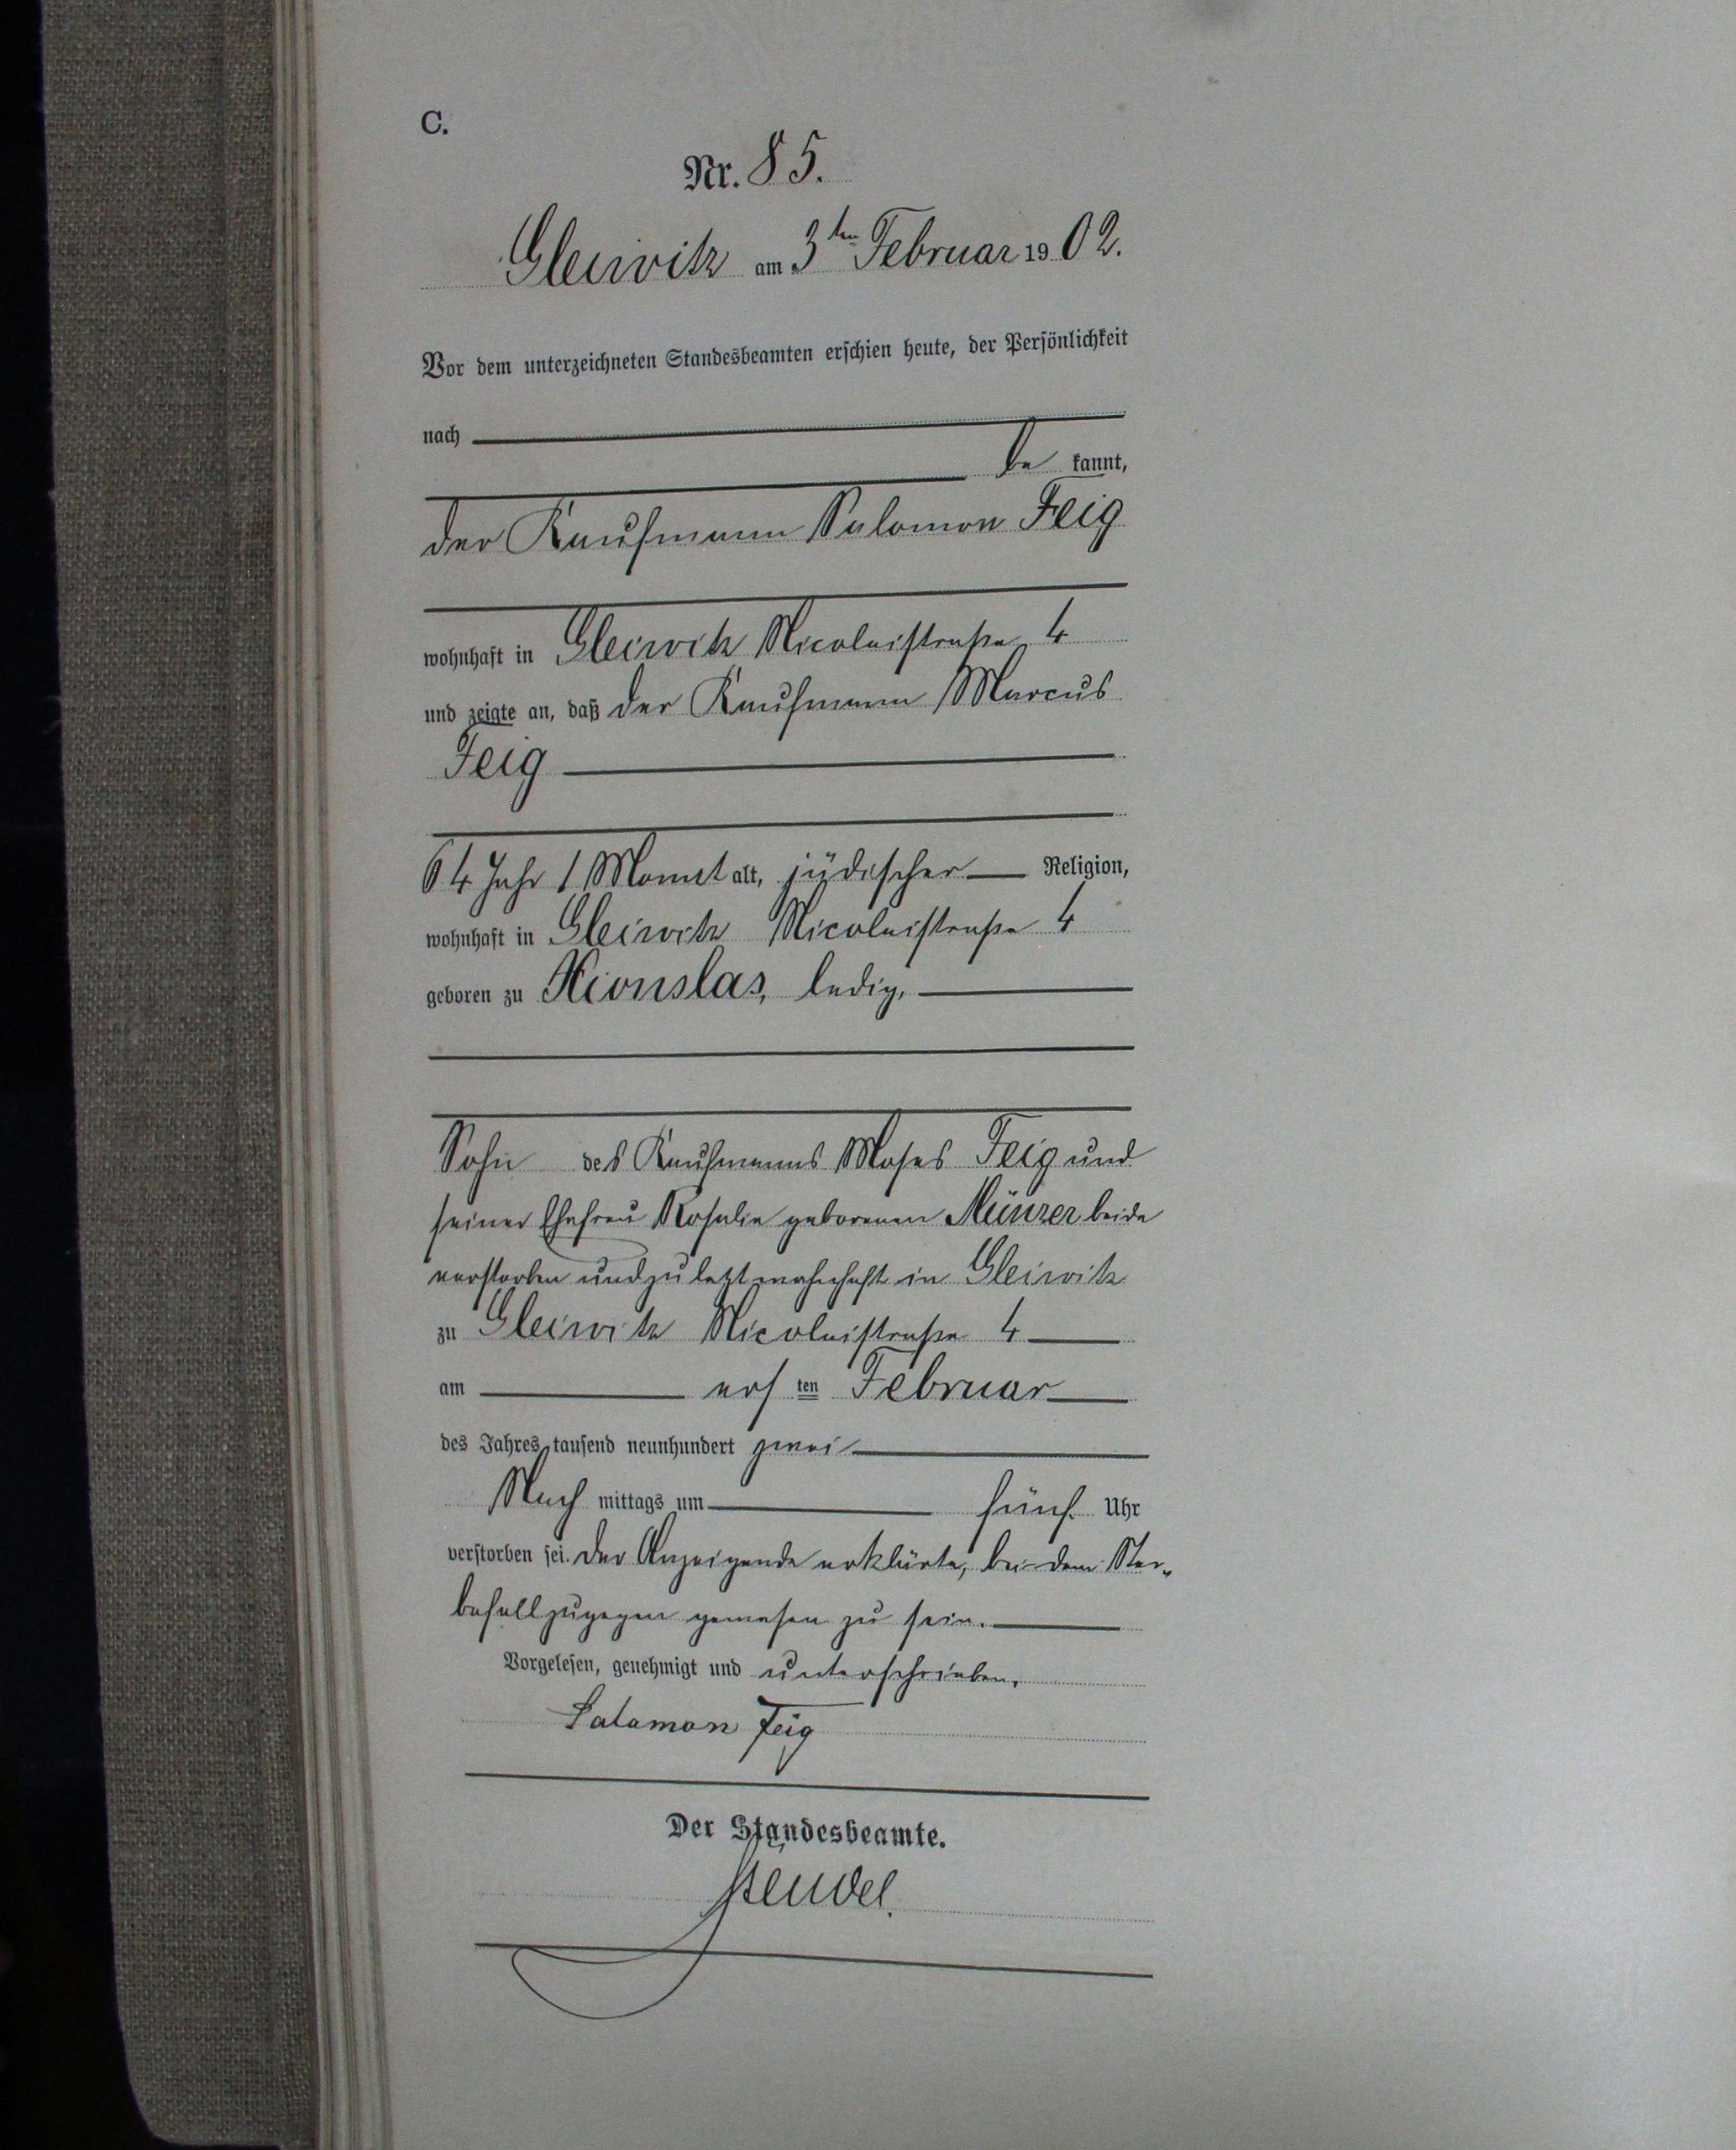 C.
Nr. 85.
Gleiwitz am 3ten Februar 1902.
Vor dem unterzeichneten Standesbeamten erschien heute, der Persönlichkeit
nach
be kannt,
der Kaufmann Salomon Feig
wohnhaft in Gleiwitz Nicolaistraße 4
und zeigte an, daß der Kaufmann Marcus
Feig
64 Jahr 1 Monat alt, jüdischer Religion,
wohnhaft in Gleiwitz Nicolaistraße 4
geboren zu Kionslas, ledig,
Sohn des Kaufmanns Moses Feig und
seiner Ehefrau Rosalie geborenen Münzer beide
verstorben und zuletzt wohnhaft in Gleiwitz
zu Gleiwitz Nicolaistraße 4
am ersten Februar
des Jahres tausend neunhundert zwei
Nach mittags um fünf Uhr
verstorben sei. Der Anzeigende erklärte, bei dem Ster-
befall zugegen gewesen zu sein.
Vorgelesen, genehmigt und unterschrieben.
Salamon Feig
Der Standesbeamte.